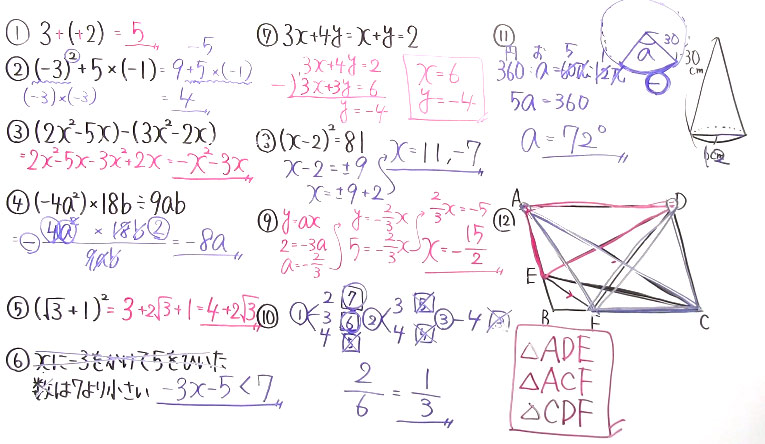 ① 3+(+2)=5
② (-3)²+5×(-1)=9+5×(-1)
-5
(-3)×(-3)
=4
③ (2x²-5x)-(3x²-2x)
=2x²-5x-3x²+2x=-x²-3x
④ (-4a²)×18b÷9ab
=-4a²×18b②/9ab=-8a
⑤ (√3+1)²=3+2√3+1=4+2√3
⑥ xに-3をかけて5をひいた
数は7より小さい -3x-5<7
⑦ 3x+4y=x+y=2
3x+4y=2
-)3x+3y=6
y=-4
x=6
y=-4
③ (x-2)²=81
x-2=±9
x=±9+2
x=11,-7
⑨ y=ax
2=-3a
a=-2/3
y=-2/3x
5=-2/3x
2/3x=-5
x=-15/2
⑩ ① 2 7
3 6
4 5
② 3 5
4 4
③-4
2/6=1/3
⑪
円 お 5 1
360:a=60π:12π
5a=360
a=72°
a 30
30
cm
⑫
A D
E
B F C
△ADE
△ACF
△CDF